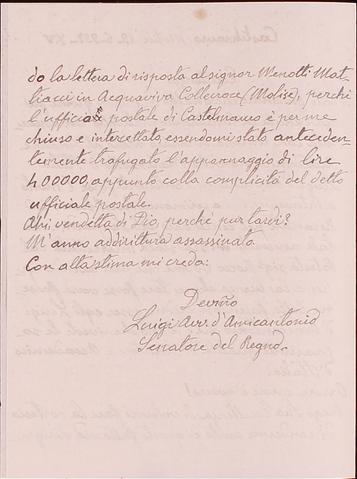 do la lettera di risposta al signor Menotti Mat-
tiacci in Acquaviva Collecroce (Molise), perchè
l'ufficio postale di Castelmauro è per me
chiuso e intercettato, essendomi stato anteceden-
temente trafugato l'appannaggio di lire
400000, appunto colla complicità del detto
ufficiale postale.
Ahi vendetta di Dio, perchè pur tardi?
M'anno addirittura assassinato.
Con alta stima mi creda:
Dev.mo
Luigi Avv. d'Amicantonio
Senatore del Regno.